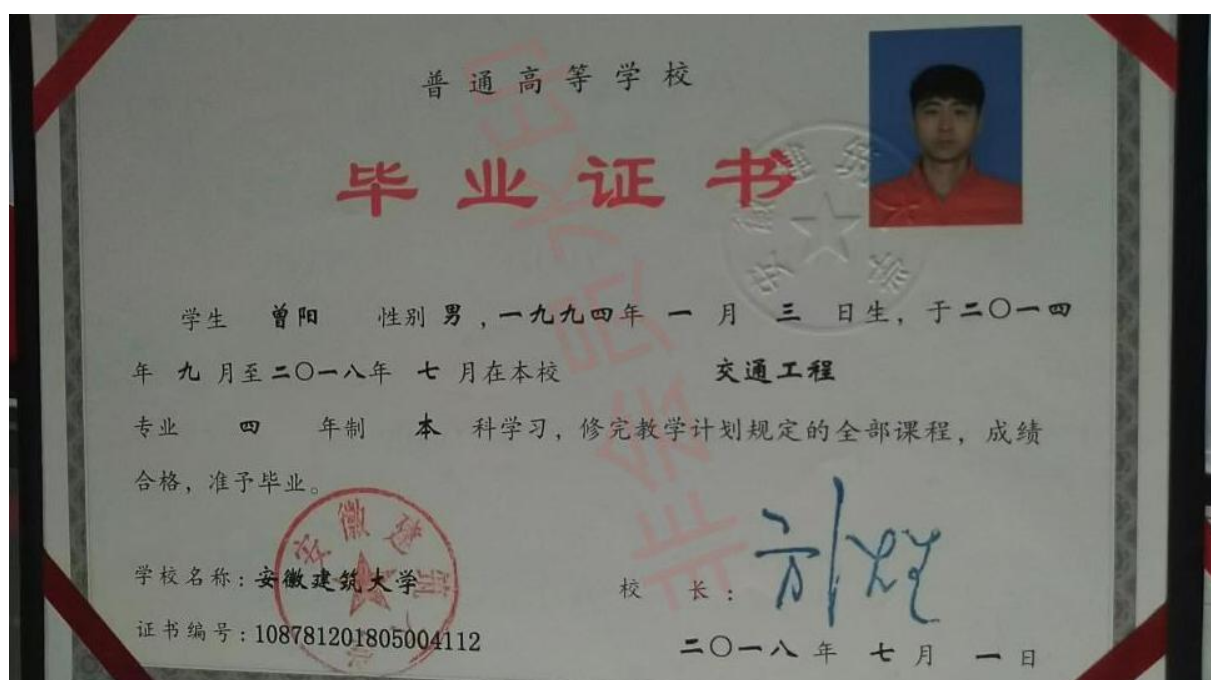 普通高等学校
毕业证书
学生 曾阳 性别 男，一九九四年 一 月 三 日生，于二〇一四
年 九 月至二〇一八年 七 月在本校 交通工程
专业 四 年制 本 科学习，修完教学计划规定的全部课程，成绩
合格，准予毕业。
学校名称：安徽建筑大学
校 长：
证书编号：108781201805004112
二〇一八 年 七 月 一 日
安徽建筑大学